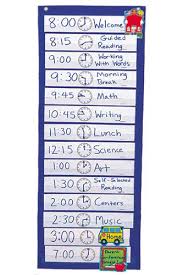 8:00 Welcome
8:15 Guided
Reading
9:00 Working
With Words
9:30 Morning
Break
9:45 Math
10:45 Writing
11:30 Lunch
12:15 Science
1:00 Art
1:30 Self-Selected
Reading
2:00 Centers
2:30 Music
3:00 Home
7:00